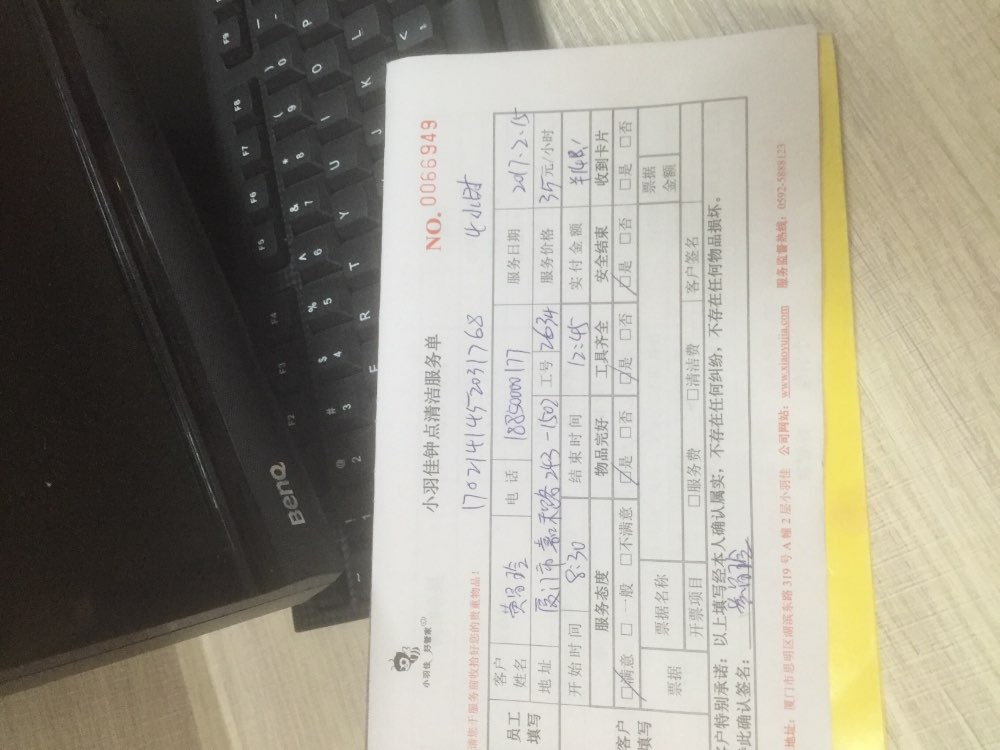 小羽佳 好管家
小羽佳钟点清洁服务单
NO. 0066949
请您于服务前收拾好您的贵重物品!
1702141452031768
4小时
员工填写
客户姓名 黄 玲 电话 18850000177 服务日期 2017.2.15
地址 厦门市嘉禾路243-1502 工号 2634 服务价格 35元/小时
开始时间 8:30 结束时间 12:45 实付金额 ¥148
客户填写
服务态度 物品完好 工具齐全 安全结束 收到卡片
□满意 □一般 □不满意 □是 □否 □是 □否 □是 □否 □是 □否
票据 票据名称 票据金额
开票项目 □服务费 □清洁费 客户签名
客户特别承诺:以上填写经本人确认属实,不存在任何纠纷,不存在任何物品损坏。
特此确认签名:
地址:厦门市思明区湖滨东路319号A幢2层小羽佳 公司网站:www.xiaoyujia.com 服务监督热线:0592-5888123
BenQ
F2 F3 F4 F5 F6 F7 F8 F9
@ 2 # 3 $ 4 % 5 ^ 6 & 7 * 8 ( 9 ) 0
R T Y U I O P
J K L